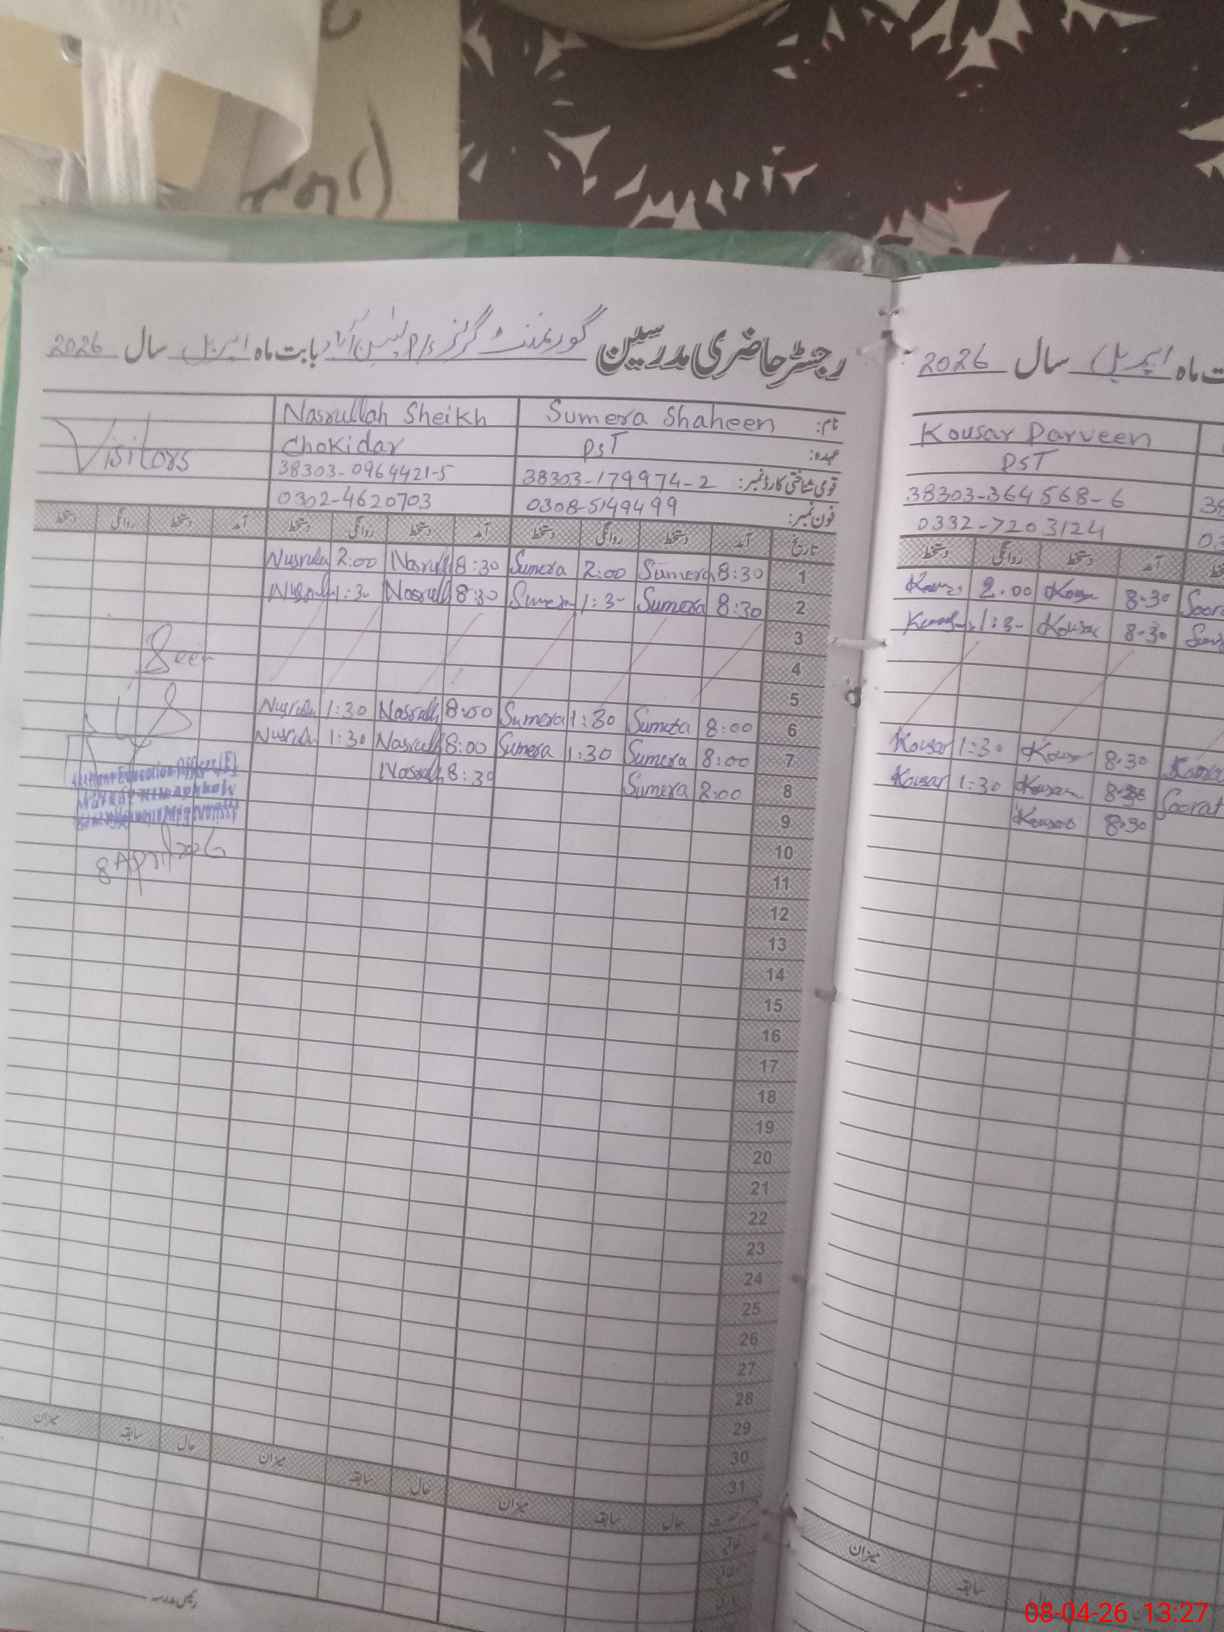 رجسٹر حاضری مدرسین گورنمنٹ گرلز بابت ماہ اپریل سال 2026
نام: Sumera Shaheen Nasrullah Sheikh
عہدہ: PST Chokidar Visitors
قومی شناختی کارڈ نمبر: 38303-179974-2 38303-0964421-5
فون نمبر: 0308-5149499 0302-4620703
تاریخ آمد دستخط روانگی دستخط آمد دستخط روانگی دستخط آمد دستخط روانگی دستخط
1 8:30 Sumera 2:00 Sumera 8:30 Nasrull 2:00
2 8:30 Sumera 1:3- Sumera 8:30 Nasrull 1:3-
3
4 Seen
5
6 8:00 Sumera 1:30 Sumera 8:00 Nasrull 1:30
7 8:00 Sumera 1:30 Sumera 8:00 Nasrull 1:30
8 2:00 Sumera 8:30 Nasrull
9
10 8 April 2026
11
12
13
14
15
16
17
18
19
20
21
22
23
24
25
26
27
28
29
30
31
حال سابقہ میزان حال سابقہ میزان حال سابقہ میزان
ماہ اپریل سال 2026
Kousar Parveen
PST
38303-364568-6
0332-7203124
آمد دستخط روانگی دستخط
8.30 Kousar 2.00
8.30 Kousar 1:3-
8.30 Kousar 1:30 Kousar
Kousar 1:30 Kousar
8.30 Kousar
سابقہ میزان
08-04-26 13:27